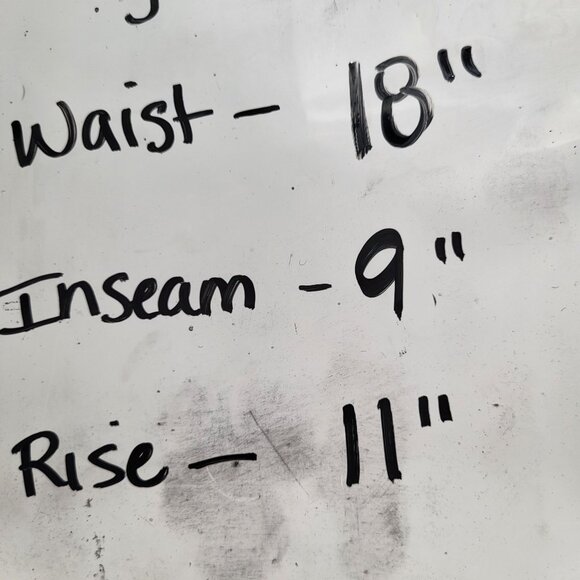 Waist - 18"
Inseam - 9"
Rise - 11"